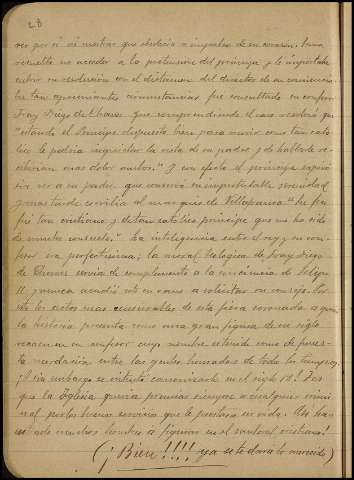 28
ver por sí si mostrar que obedecía a impulsos de su corazon. Esma
resuelto no acceder a la pretension del príncipe y le importaba
cubrir su resolucion con el dictamen del director de su conciencia.
En tan apremiantes circunstancias fue consultado su confesor
Fray Diego de Chaves que comprendiendo el caso resolvió que
"estando el Principe dispuesto bien para morir como tan cató-
lico le podría inquietar la vista de su padre y de hablarle re-
cibirian mas dolor ambos." Y con efecto el príncipe espiró
sin ver a su padre que conservó su imperturbable serenidad
y mas tarde escribía al marqués de Villafranca "Su fin
fué tan cristiano y de tan católico príncipe que me ha sido
de mucho consuelo." La inteligencia entre el rey y su con-
fesor era perfectísima; la moral teológica de Fray Diego
de Chaves servía de complemento a la conciencia de Felipe
II y nunca acudió este en vano a solicitar su consejo. Por
esto los actos mas censurables de esta fiera coronada a quien
la historia presenta como una gran figura de su siglo
recaen en su confesor cuyo nombre es tenido como de funes-
ta recordacion entre las gentes honradas de todos los tiempos.
¡Y sin embargo se intentó canonizarle en el siglo 18! Es
que la Iglesia querría premiar siempre a cualquier crimi-
nal por los buenos servicios que le prestara en vida. Así han
entrado muchos hombres a figurar en el santoral cristiano!
(¡Bien!!!! ya se te dara lo merecido)